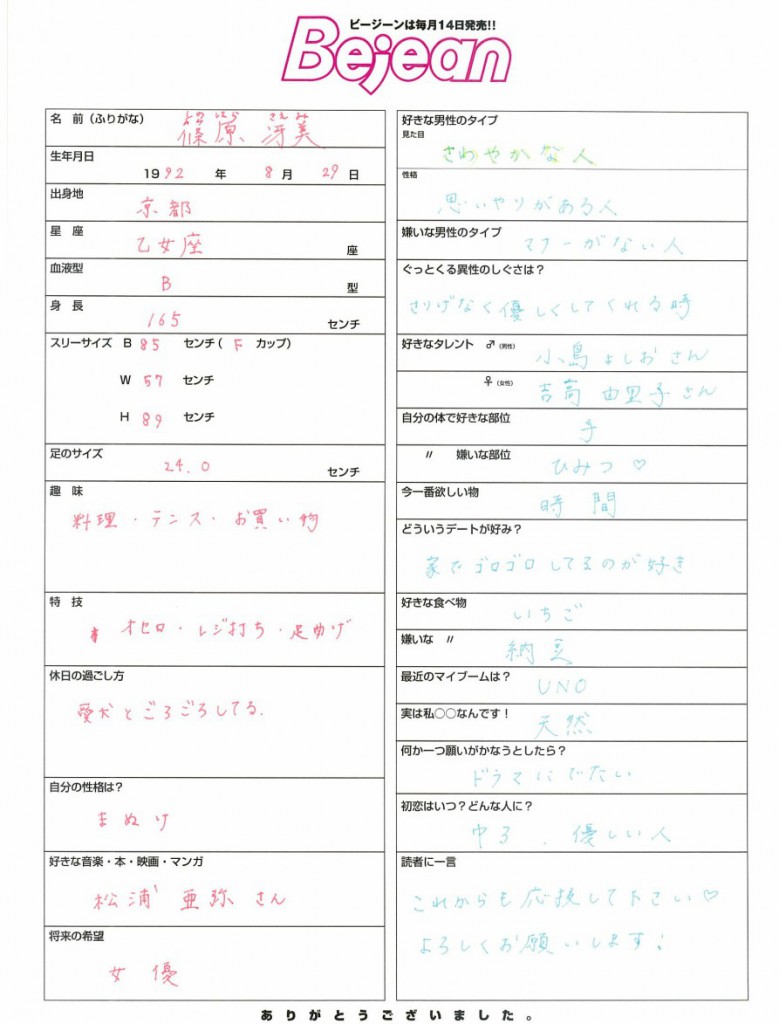 ビージーンは毎月14日発売!!
Bejean
名 前 (ふりがな) 篠原 冴美
生年月日
1992 年 8 月 29 日
出身地 京都
星 座 乙女座 座
血液型 B 型
身 長 165 センチ
スリーサイズ B 85 センチ ( F カップ)
W 57 センチ
H 89 センチ
足のサイズ 24.0 センチ
趣 味
料理・テニス・お買い物
特 技
オセロ・レジ打ち・足曲げ
休日の過ごし方
愛犬とごろごろしてる.
自分の性格は?
まぬけ
好きな音楽・本・映画・マンガ
松浦 亜弥 さん
将来の希望
女 優
好きな男性のタイプ
見た目 さわやかな人
性格
思いやりがある人
嫌いな男性のタイプ マナーがない人
ぐっとくる異性のしぐさは?
さりげなく優しくしてくれる時
好きなタレント ♂(男性) 小島よしおさん
♀(女性) 吉高 由里子さん
自分の体で好きな部位 手
〃 嫌いな部位 ひみつ♡
今一番欲しい物 時間
どういうデートが好み?
家でゴロゴロしてるのが好き
好きな食べ物 いちご
嫌いな 〃 納豆
最近のマイブームは? UNO
実は私○○なんです! 天然
何か一つ願いがかなうとしたら?
ドラマにでたい
初恋はいつ?どんな人に?
中3 . 優しい人
読者に一言
これからも応援して下さい♡
よろしくお願いします!
ありがとうございました。